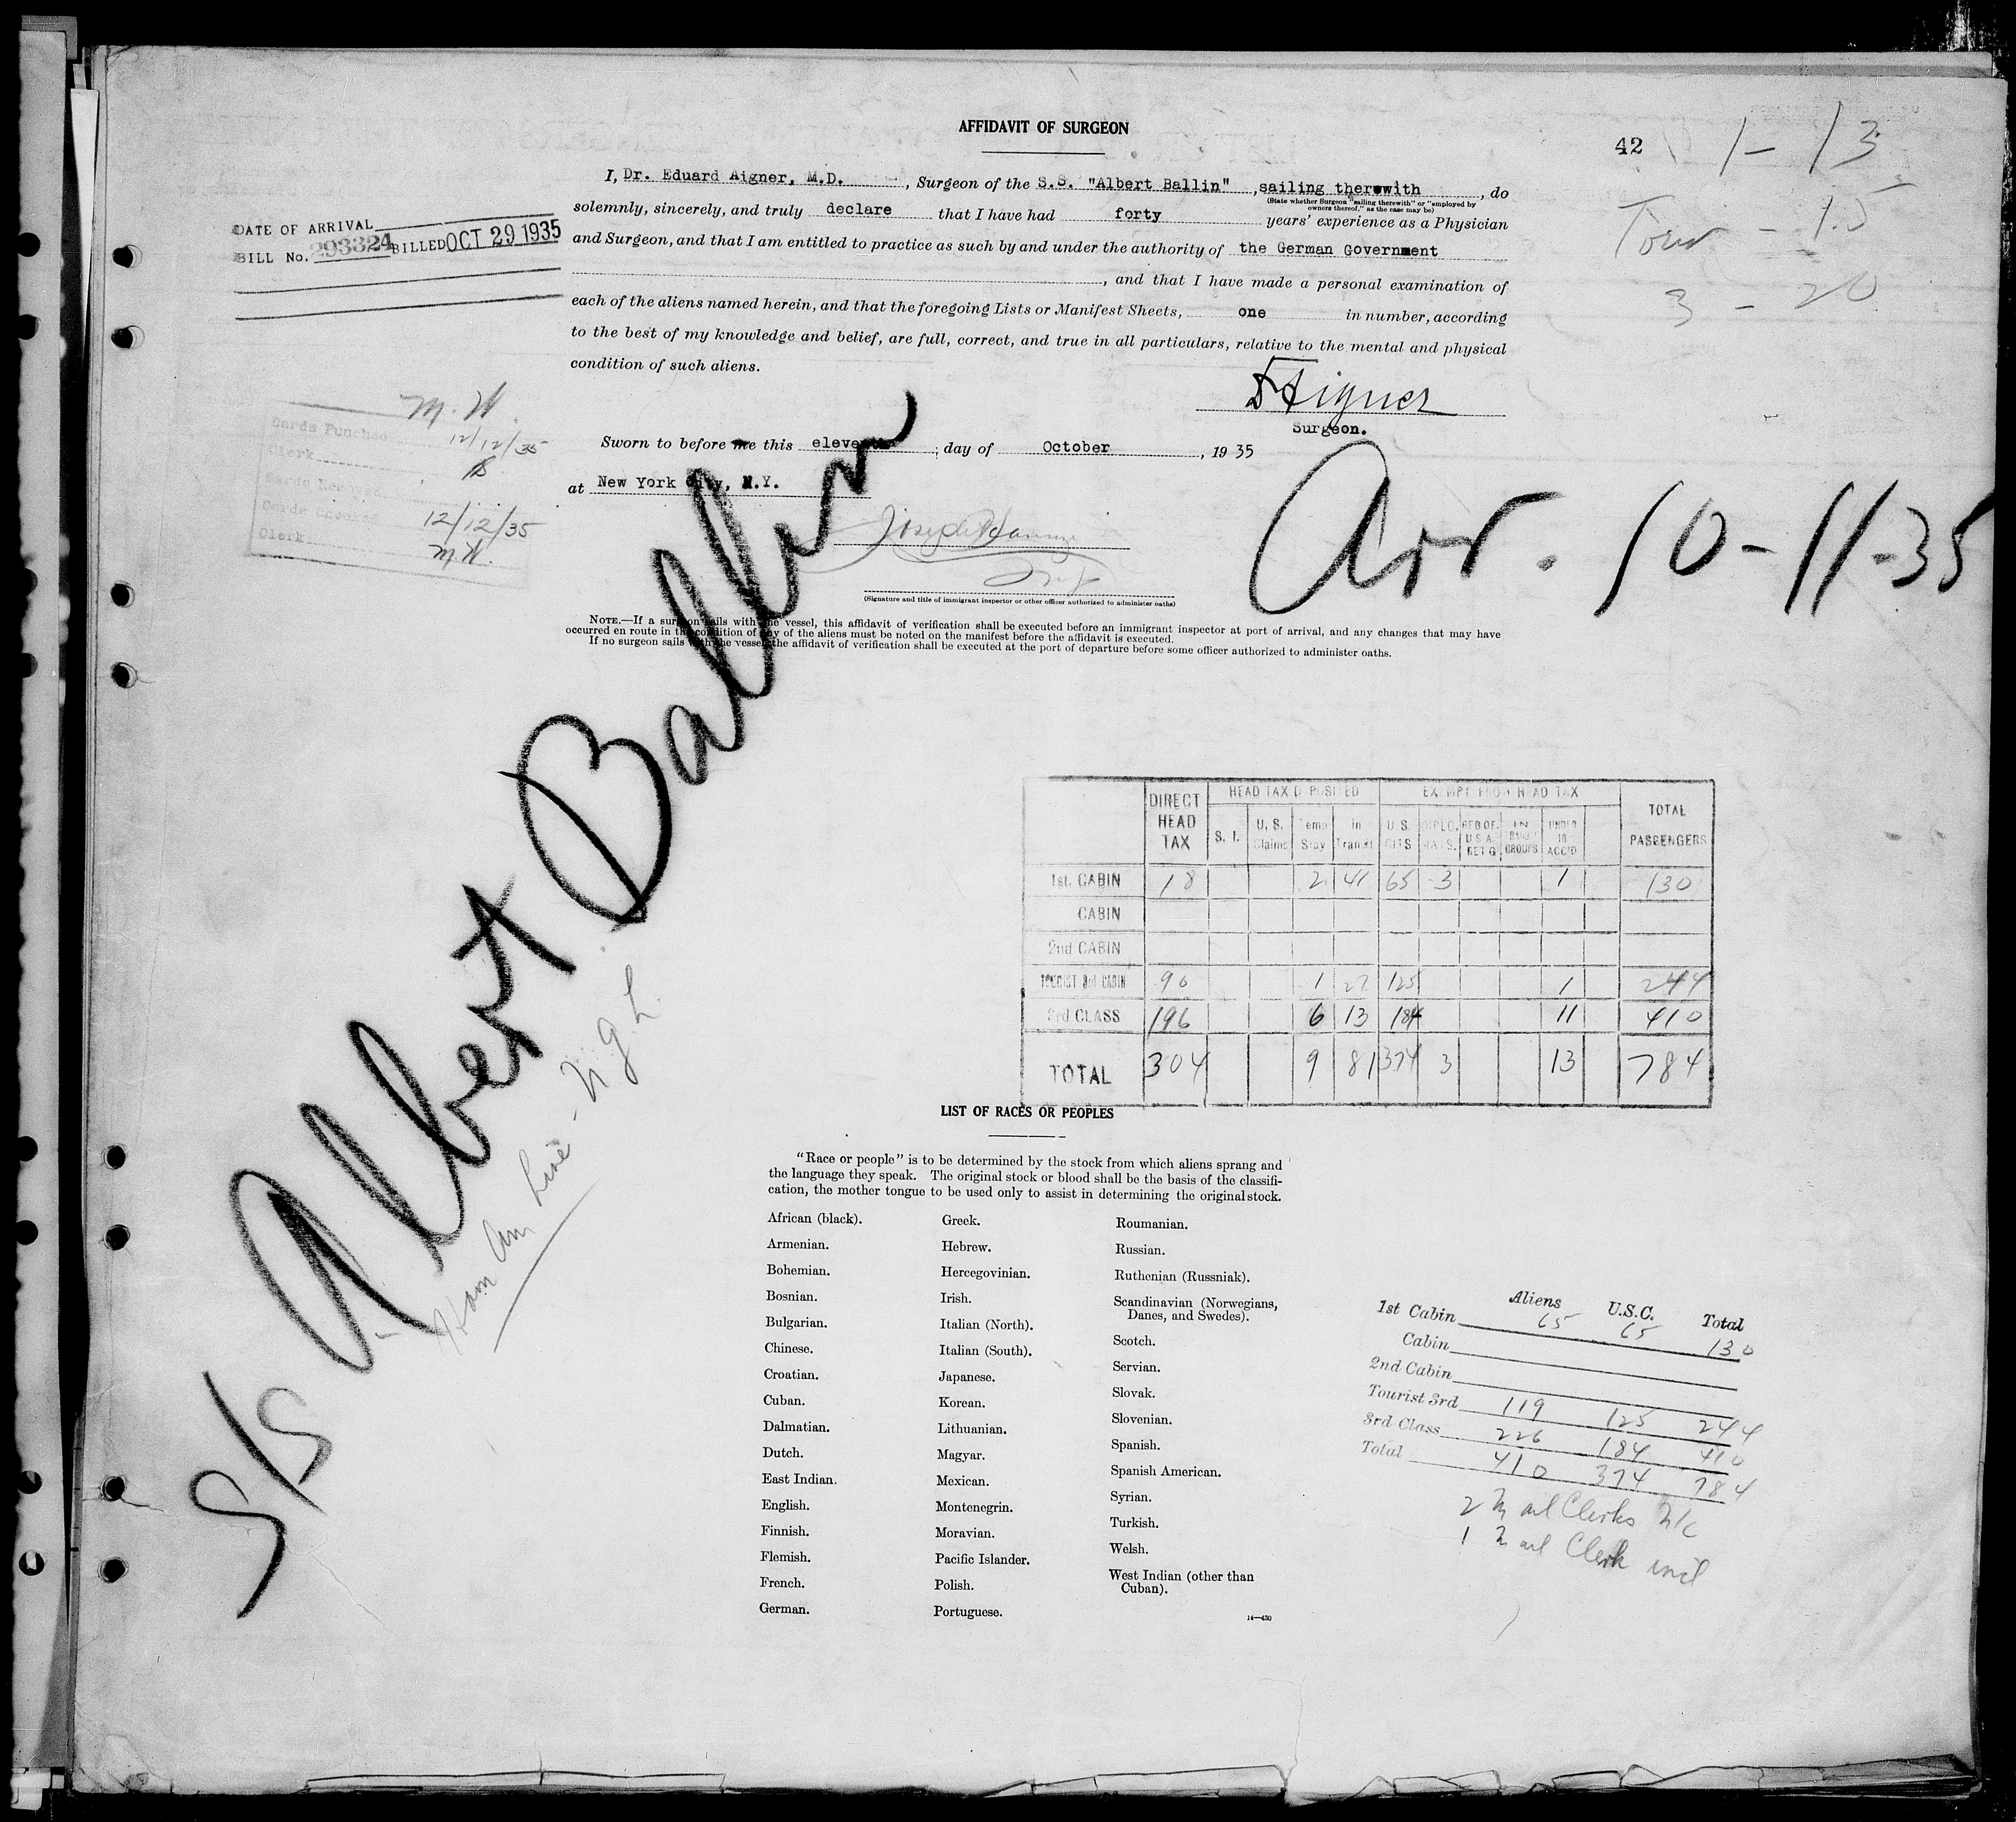 AFFIDAVIT OF SURGEON
42
1 - 13
Tour - 15
3 - 20
I, Dr. Eduard Aigner, M.D. , Surgeon of the S.S. "Albert Ballin" , sailing therewith , do
(State whether Surgeon "sailing therewith" or "employed by
owners thereof," as the case may be)
solemnly, sincerely, and truly declare that I have had forty years' experience as a Physician
and Surgeon, and that I am entitled to practice as such by and under the authority of the German Government
, and that I have made a personal examination of
each of the aliens named herein, and that the foregoing Lists or Manifest Sheets, one in number, according
to the best of my knowledge and belief, are full, correct, and true in all particulars, relative to the mental and physical
condition of such aliens.
DATE OF ARRIVAL
BILL No. 293324 BILLED OCT 29 1935
M.W.
Cards Punched 12/12/35
Clerk
Cards Checked 12/12/35
Clerk M.W.
E Aigner
Surgeon.
Sworn to before me this eleventh ; day of October , 19 35
at New York City, N.Y.
Arr. 10-11-35
(Signature and title of immigrant inspector or other officer authorized to administer oaths)
NOTE.—If a surgeon sails with the vessel, this affidavit of verification shall be executed before an immigrant inspector at port of arrival, and any changes that may have
occurred en route in the condition of any of the aliens must be noted on the manifest before the affidavit is executed.
If no surgeon sails with the vessel the affidavit of verification shall be executed at the port of departure before some officer authorized to administer oaths.
S/S Albert Ballin
Ham Am Line - N g L
DIRECT HEAD TAX HEAD TAX DEPOSITED EXEMPT FROM HEAD TAX TOTAL PASSENGERS
S. I. U. S. Claims Temp Stay in Transit U. S. CITS DIPLO. MATS. RES OF U.S.A. RET'G IN TRANSIT GROUPS UNDER 16 ACC'D
1st. CABIN 18 2 41 65 3 1 130
CABIN
2nd CABIN
TOURIST 3rd CABIN 90 1 27 125 1 244
3rd CLASS 196 6 13 184 11 410
TOTAL 304 9 81 374 3 13 784
LIST OF RACES OR PEOPLES
"Race or people" is to be determined by the stock from which aliens sprang and
the language they speak. The original stock or blood shall be the basis of the classifi-
cation, the mother tongue to be used only to assist in determining the original stock.
African (black).
Armenian.
Bohemian.
Bosnian.
Bulgarian.
Chinese.
Croatian.
Cuban.
Dalmatian.
Dutch.
East Indian.
English.
Finnish.
Flemish.
French.
German.
Greek.
Hebrew.
Hercegovinian.
Irish.
Italian (North).
Italian (South).
Japanese.
Korean.
Lithuanian.
Magyar.
Mexican.
Montenegrin.
Moravian.
Pacific Islander.
Polish.
Portuguese.
Roumanian.
Russian.
Ruthenian (Russniak).
Scandinavian (Norwegians,
Danes, and Swedes).
Scotch.
Servian.
Slovak.
Slovenian.
Spanish.
Spanish American.
Syrian.
Turkish.
Welsh.
West Indian (other than
Cuban).
14—430
Aliens U.S.C. Total
1st Cabin 65 65 130
Cabin
2nd Cabin
Tourist 3rd 119 125 244
3rd Class 226 184 410
Total 410 374 784
2 Mail Clerks N/C
1 Mail Clerk incl